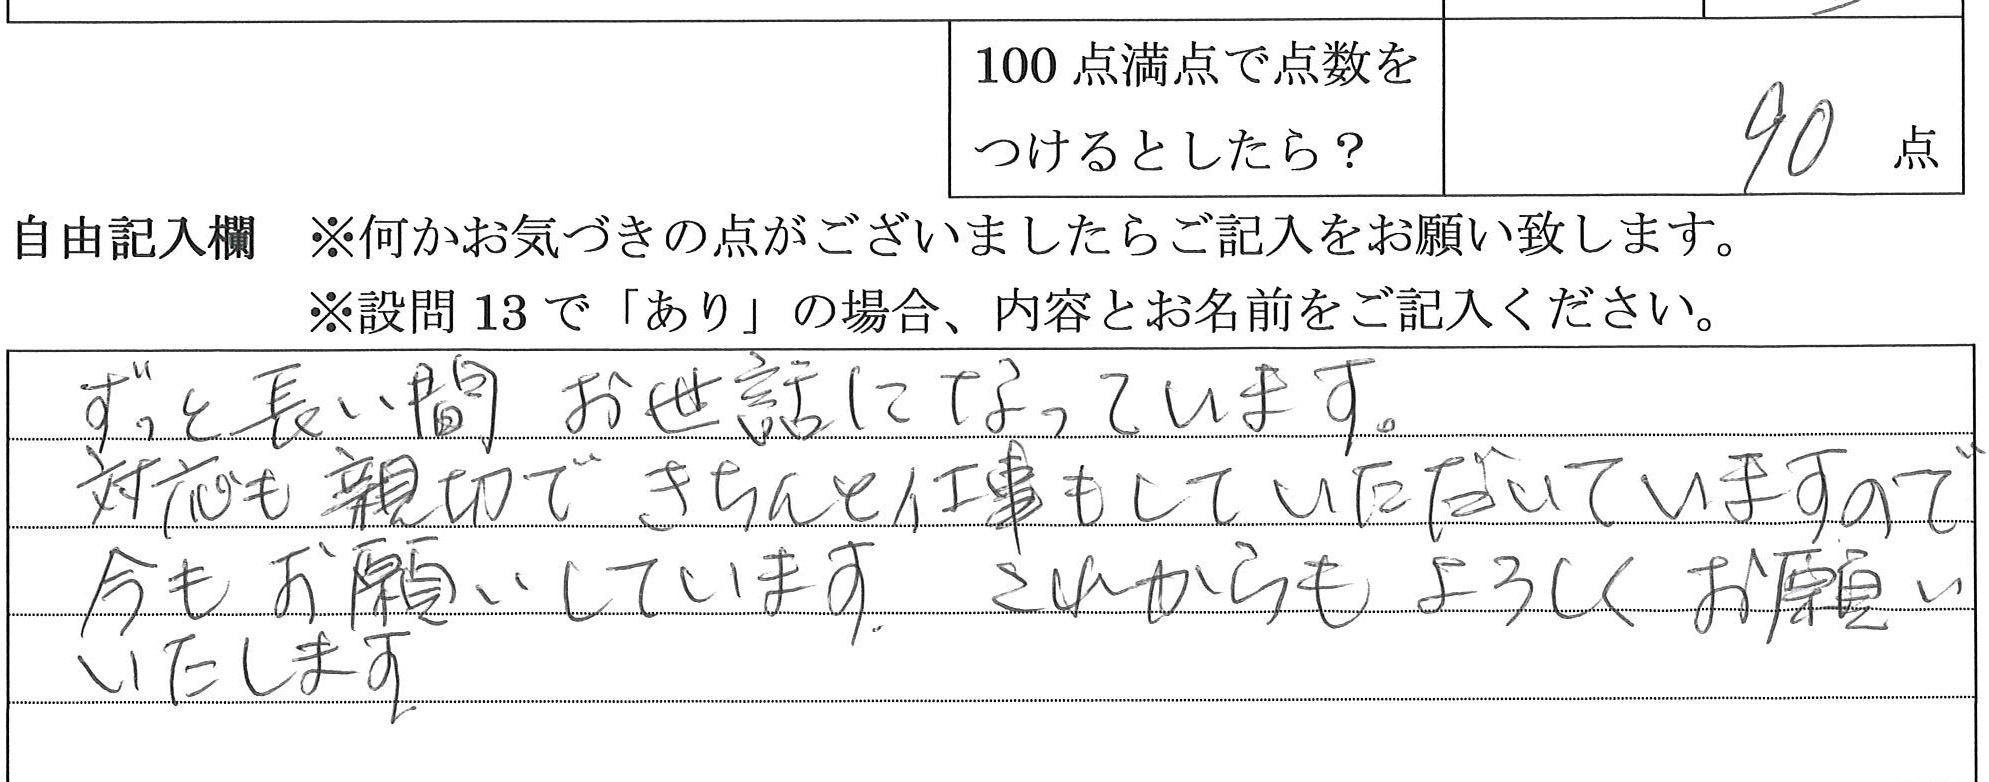 100 点満点で点数を
つけるとしたら？
90 点
自由記入欄 ※何かお気づきの点がございましたらご記入をお願い致します。
※設問 13 で「あり」の場合、内容とお名前をご記入ください。
ずっと長い間 お世話になっています。
対応も親切で きちんと仕事もしていただいていますので
今もお願いしています. これからも よろしく お願い
いたします